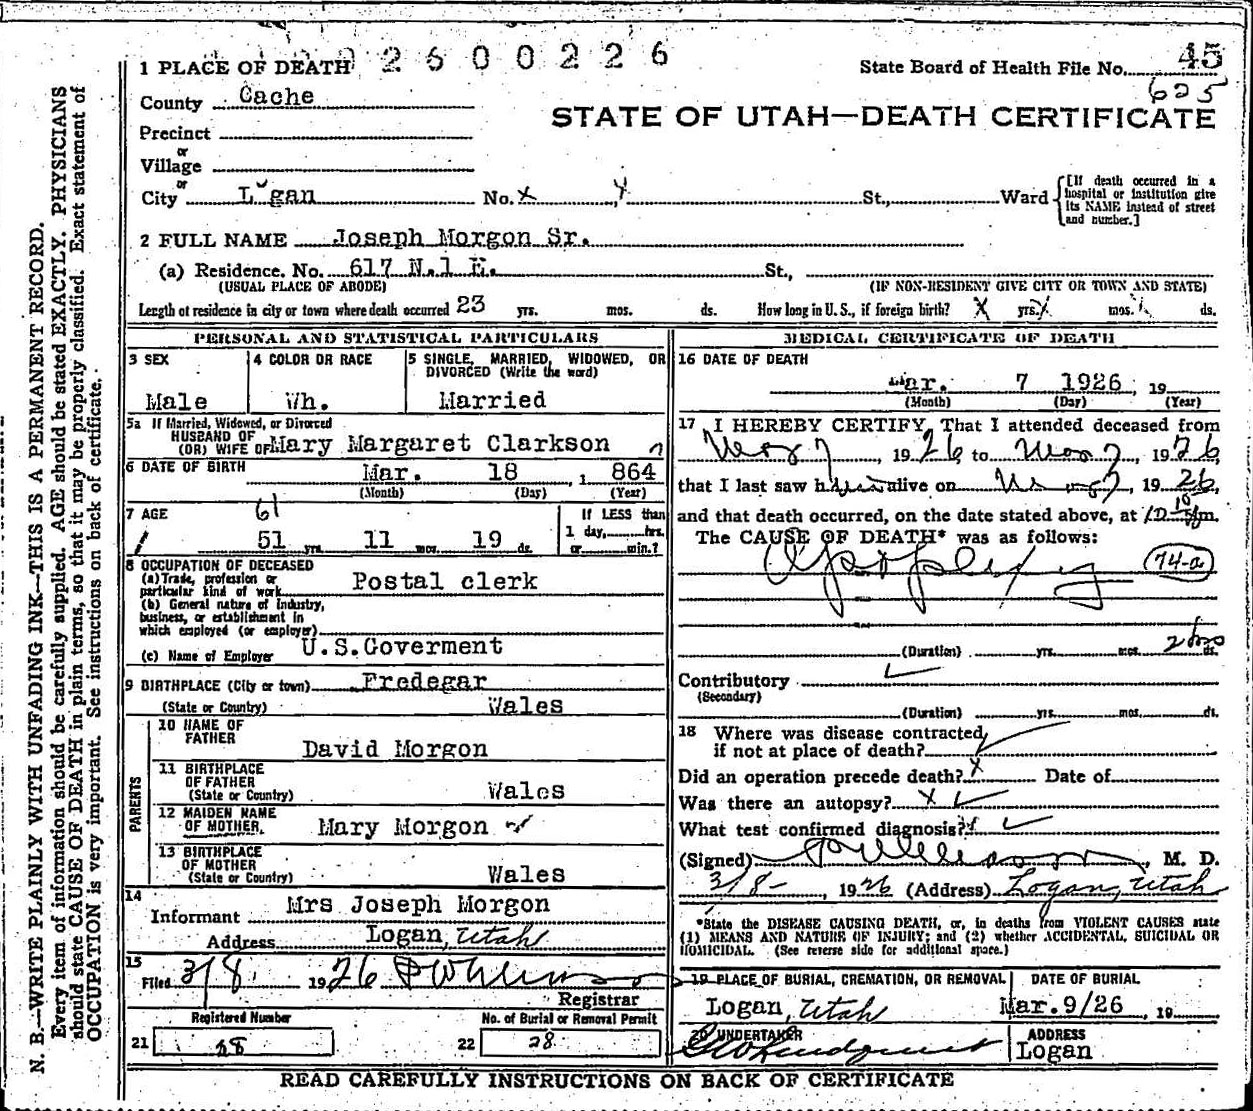 N. B.—WRITE PLAINLY WITH UNFADING INK—THIS IS A PERMANENT RECORD.
Every item of information should be carefully supplied. AGE should be stated EXACTLY. PHYSICIANS
should state CAUSE OF DEATH in plain terms, so that it may be properly classified. Exact statement of
OCCUPATION is very important. See instructions on back of certificate.
2600226
1 PLACE OF DEATH
State Board of Health File No. 45
625
County Cache
STATE OF UTAH—DEATH CERTIFICATE
Precinct
or
Village
or
City Logan No. x x St., Ward
[If death occurred in a
hospital or institution give
its NAME instead of street
and number.]
2 FULL NAME Joseph Morgon Sr.
(a) Residence. No. 617 N.1 E. St.,
(USUAL PLACE OF ABODE) (IF NON-RESIDENT GIVE CITY OR TOWN AND STATE)
Length of residence in city or town where death occurred 23 yrs. mos. ds. How long in U. S., if foreign birth? X yrs. mos. ds.
PERSONAL AND STATISTICAL PARTICULARS
3 SEX
Male
4 COLOR OR RACE
Wh.
5 SINGLE, MARRIED, WIDOWED, OR
DIVORCED (Write the word)
Married
5a If Married, Widowed, or Divorced
HUSBAND OF
(OR) WIFE OF Mary Margaret Clarkson
6 DATE OF BIRTH
Mar. 18, 1 864
(Month) (Day) (Year)
7 AGE
61
51 yrs. 11 mos. 19 ds.
If LESS than
1 day, hrs.
or min.?
8 OCCUPATION OF DECEASED
(a) Trade, profession or
particular kind of work Postal clerk
(b) General nature of Industry,
business, or establishment in
which employed (or employer)
(c) Name of Employer U.S.Goverment
9 BIRTHPLACE (City or town) Fredegar
(State or Country) Wales
PARENTS
10 NAME OF
FATHER
David Morgon
11 BIRTHPLACE
OF FATHER
(State or Country) Wales
12 MAIDEN NAME
OF MOTHER. Mary Morgon
13 BIRTHPLACE
OF MOTHER
(State or Country) Wales
14
Informant Mrs Joseph Morgon
Address Logan, Utah
15
Filed 3/8, 1926
Registrar
Registered Number
21 28
No. of Burial or Removal Permit
22 28
MEDICAL CERTIFICATE OF DEATH
16 DATE OF DEATH
Mar. 7 1926, 19
(Month) (Day) (Year)
17 I HEREBY CERTIFY, That I attended deceased from
Mar 7, 1926, to Mar 7, 1926,
that I last saw him alive on Mar 7, 1926,
and that death occurred, on the date stated above, at 10 m.
The CAUSE OF DEATH* was as follows:
Apoplexy 74-a
(Duration) yrs. mos. ds.
Contributory
(Secondary)
(Duration) yrs. mos. ds.
18 Where was disease contracted
if not at place of death?
Did an operation precede death? x Date of
Was there an autopsy? x
What test confirmed diagnosis? x
(Signed) , M. D.
3/8-, 1926 (Address) Logan, Utah
*State the DISEASE CAUSING DEATH, or, in deaths from VIOLENT CAUSES state
(1) MEANS AND NATURE OF INJURY; and (2) whether ACCIDENTAL, SUICIDAL OR
HOMICIDAL. (See reverse side for additional space.)
19 PLACE OF BURIAL, CREMATION, OR REMOVAL
Logan, Utah
DATE OF BURIAL
Mar. 9/26, 19
20 UNDERTAKER
ADDRESS
Logan
READ CAREFULLY INSTRUCTIONS ON BACK OF CERTIFICATE